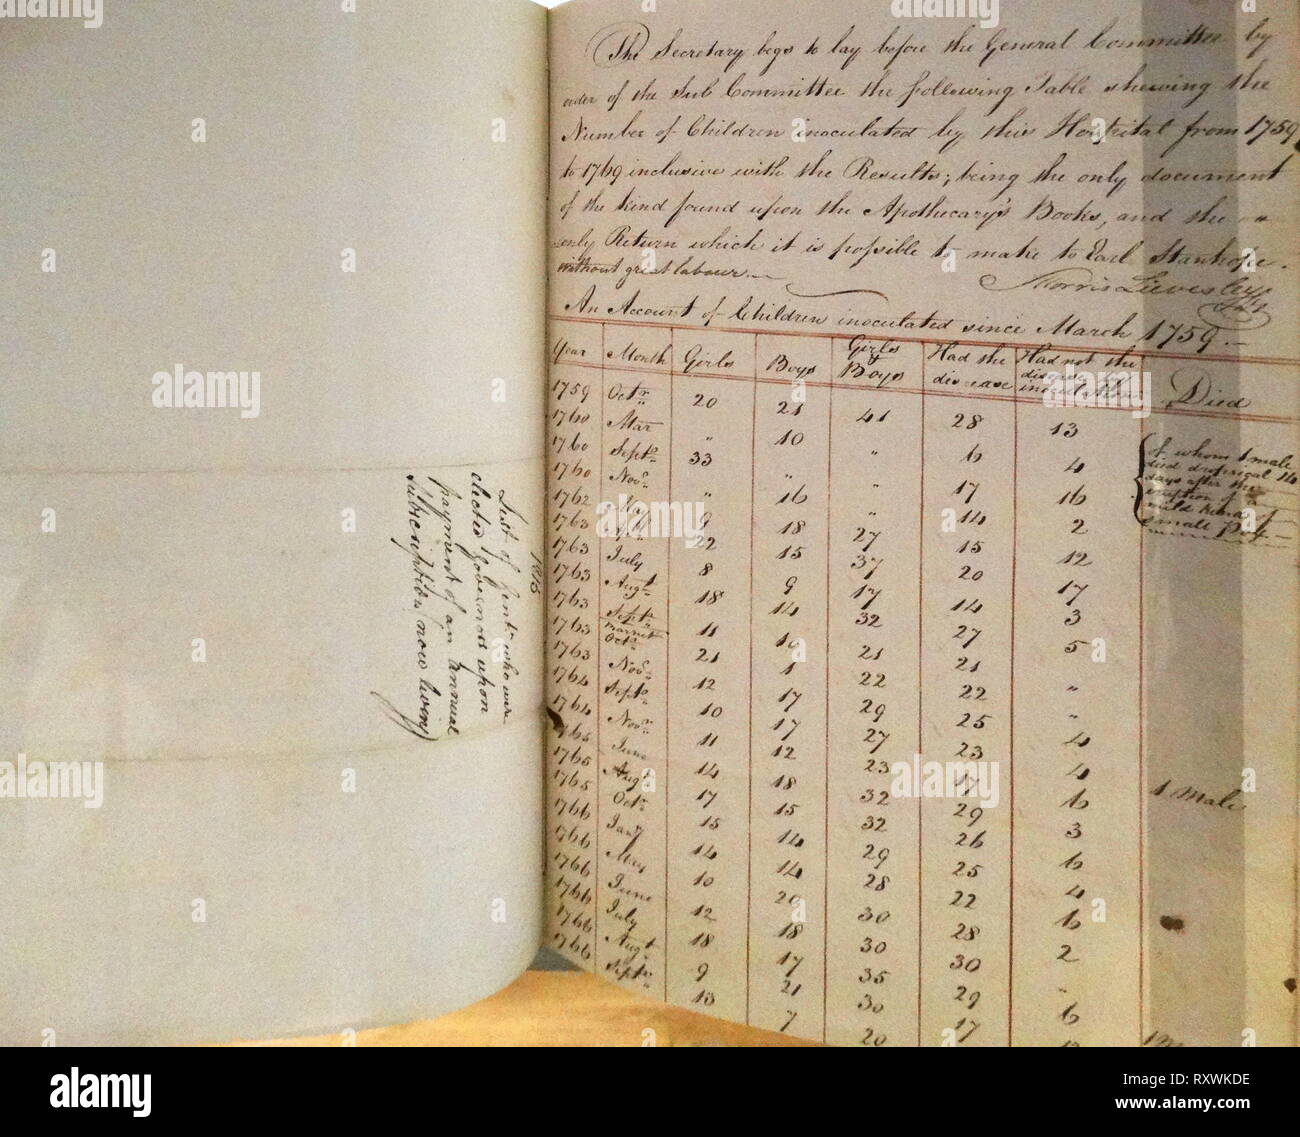 The Secretary begs to lay before the General Committee by
order of the Sub Committee the following Table shewing the
Number of Children inoculated by this Hospital from 1759
to 1769 inclusive with the Results; being the only document
of the kind found upon the Apothecary's Books, and the
only Return which it is possible to make to Earl Stanhope.
without great labour.
Morris Lievesley
An Account of Children inoculated since March 1759.
Year Month Girls Boys Girls & Boys Had the disease Had not the disease by inoculation Died
1759 Octr. 20 21 41 28 13
1760 Mar " 10 " 6 4 of whom 1 male
died dropsical 14
days after the
eruption of a
mild kind of
small Pox
1760 Septr. 33 " " 17 16
1760 Novr. " 16 " 14 2
1762 May 9 18 27 15 12
1763 Apl. 22 15 37 20 17
1763 July 8 9 17 14 3
1763 Augt. 18 14 32 27 5
1763 Septr. 11 10 21 21 "
1763 Octr. 21 1 22 22 "
1763 Novr. 12 17 29 25 4
1764 Septr. 10 17 27 23 4
1764 Novr. 11 12 23 17 6 1 Male
1765 June 14 18 32 29 3
1765 Augt. 17 15 32 26 6
1765 Octr. 15 14 29 25 4
1766 Jany 14 14 28 22 6
1766 May 10 20 30 28 2
1766 June 12 18 30 30 "
1766 July 18 17 35 29 6
1766 Augt. 9 21 30 17
1766 Septr. 13 7 20
1815
List of Gentn. who were
elected Governors upon
payment of an annual
subscription now living
alamy
Image ID: RXWKDE
www.alamy.com